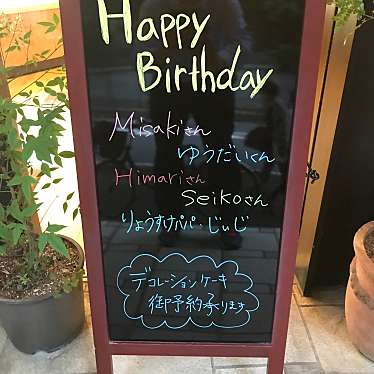 Happy
Birthday
Misakiさん
ゆうだいくん
Himariさん
Seikoさん
りょうすけパパ・じぃじ
デコレーションケーキ
御予約承ります